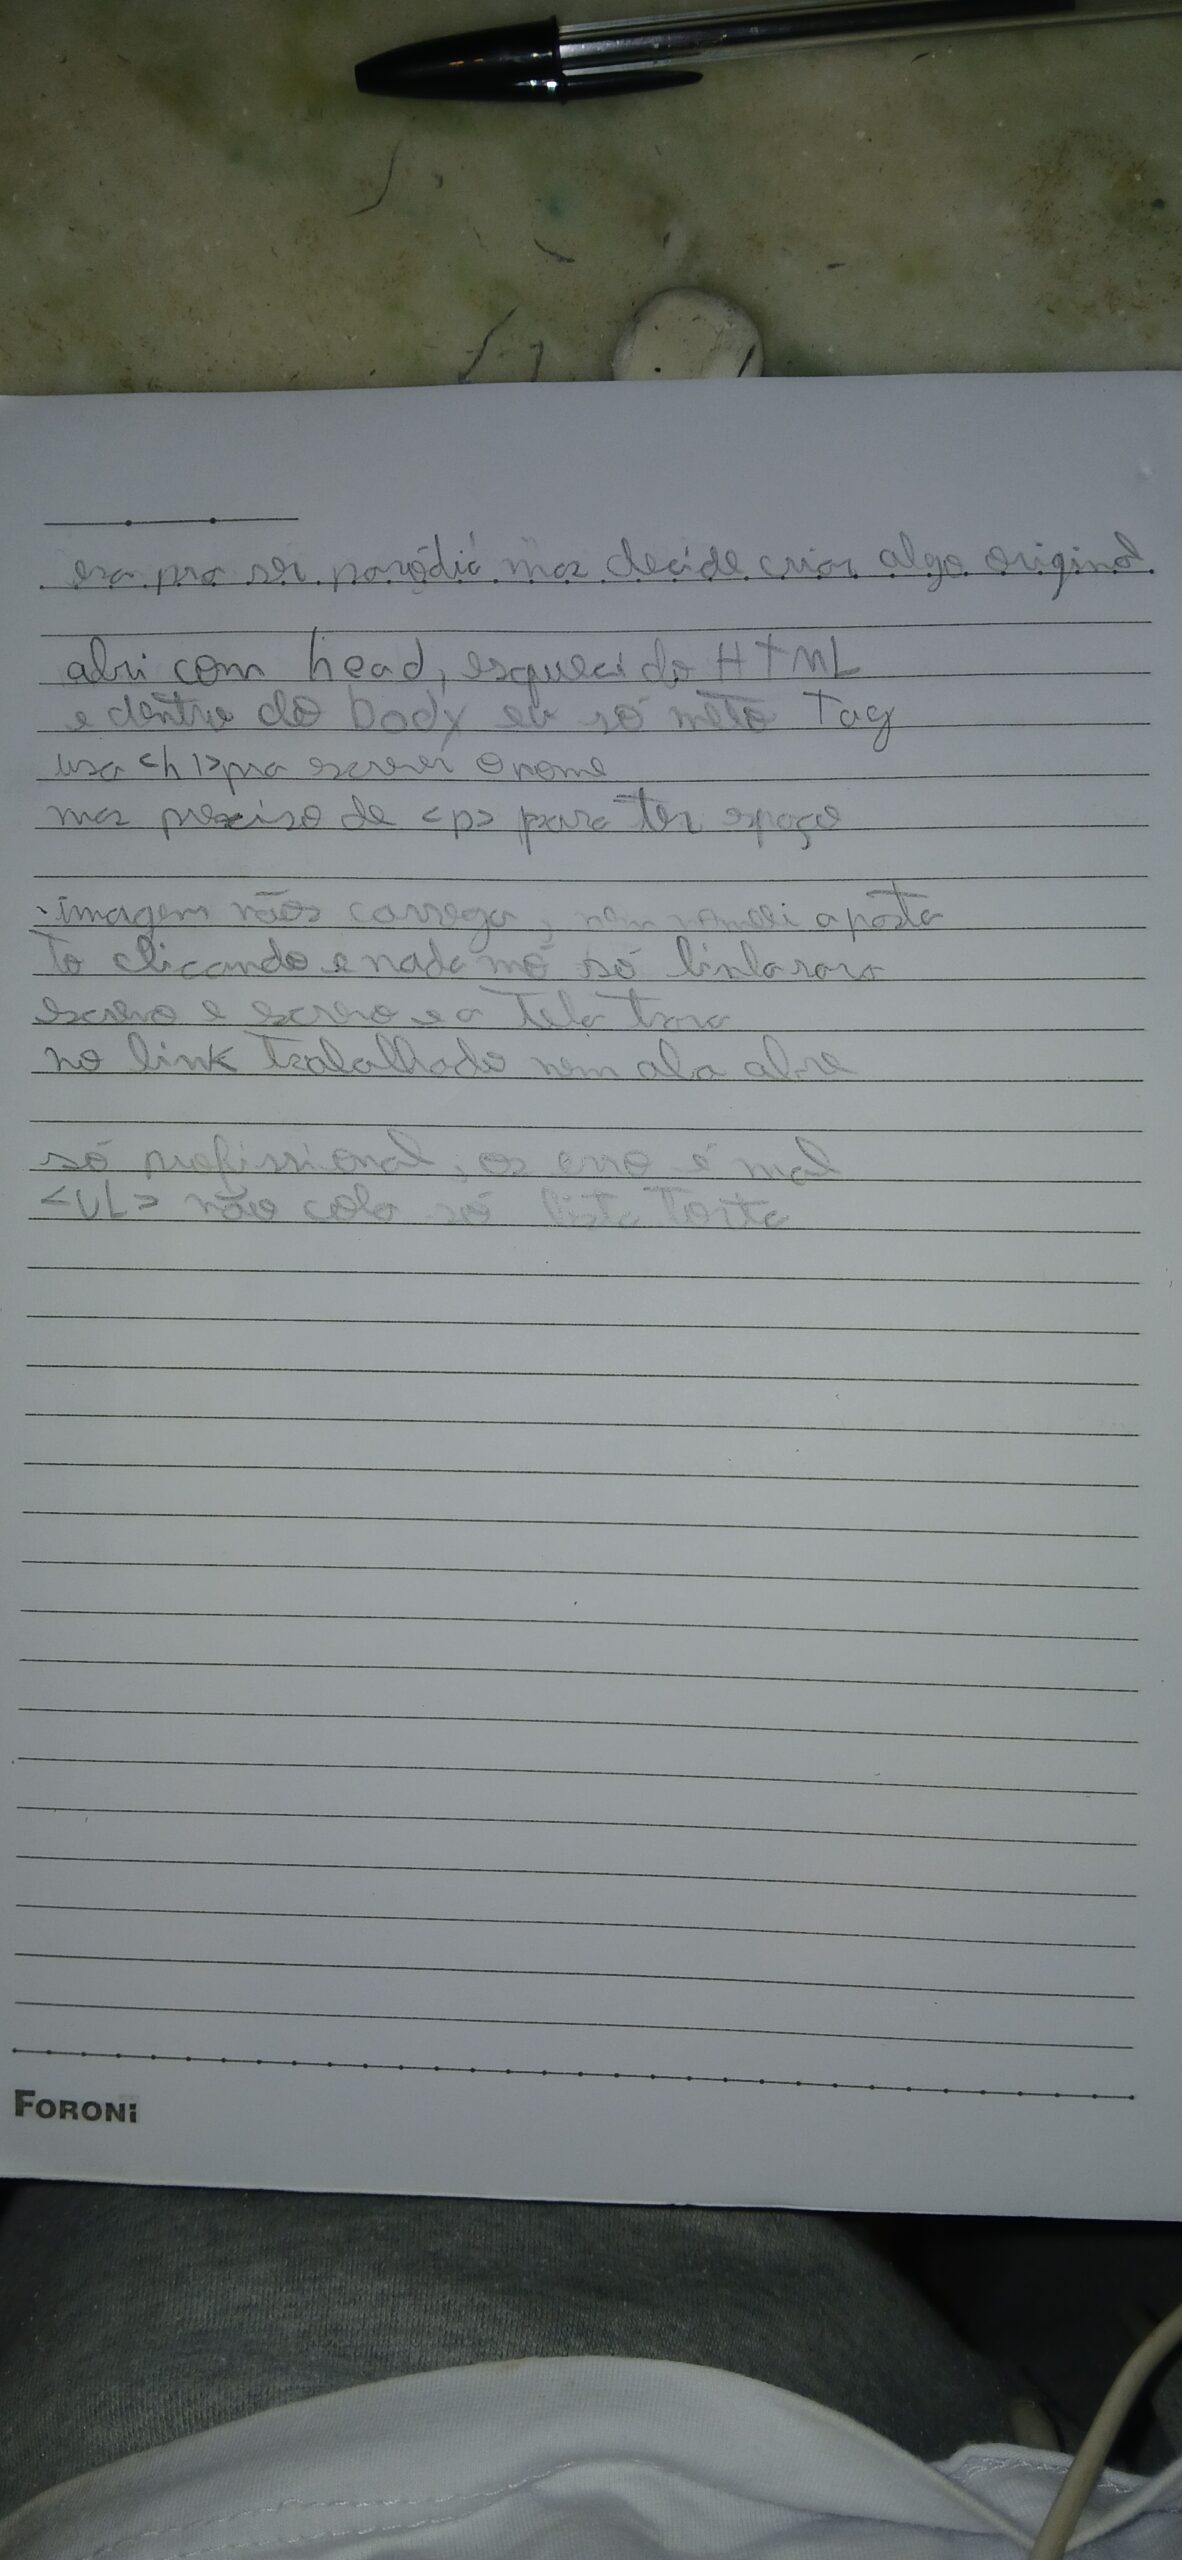 era pra ser paródia mas decide criar algo original
abri com head, esqueci do HTML
e dentro do body eu só meto Tag
usa <h1>pra escrever o nome
mas preciso de <p> para ter espaço
imagem não carrega, nem a pasta
To clicando e nada mó só linha rara
escrevo e escrevo e a Tela Trava
no link Trabalhado nem aba abre
só profissional, os erro é mal
<UL> não cola só lista Torta
FORONi